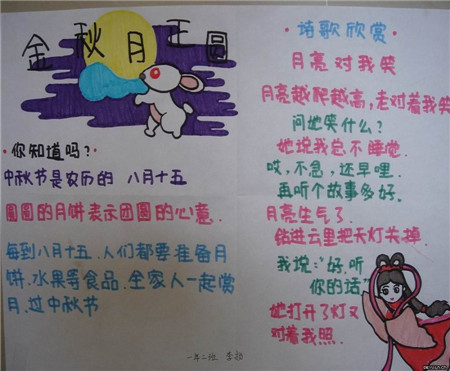 金秋月正圆
·你知道吗？·
中秋节是农历的 八月十五
圆圆的月饼表示团圆的心意.
每到八月十五.人们都要准备月
饼.水果等食品.全家人一起赏
月.过中秋节
·诗歌欣赏·
月亮对我笑
月亮越爬越高,老对着我笑
问她笑什么?
她说我总不睡觉.
哎,不急,还早哩.
再听个故事多好.
月亮生气了.
钻进云里把天灯关掉.
我说:"好.听
你的话"
她打开了灯又
对着我照.
一年二班